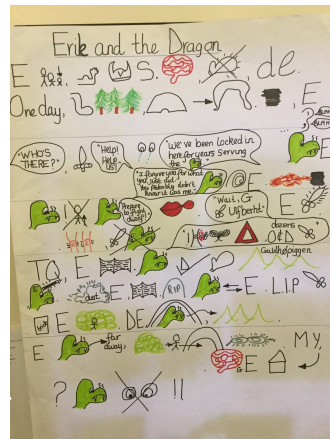 Erik and the Dragon
E S. de.
One day, E
BLAH BLAH
"WHO'S THERE?" "Help! Help us!" "We've been locked in here for years serving the
"I forgive you for what you just did. You probably didn't know it was me."
"Prepare to fight dwarf" "Wait, Gr Ulfberht" E
"I dozens O&D
Galdhøpiggen
TQ, E
dust E. RIP E. L.I.P
E DE.
E far away, E MY,
? !!